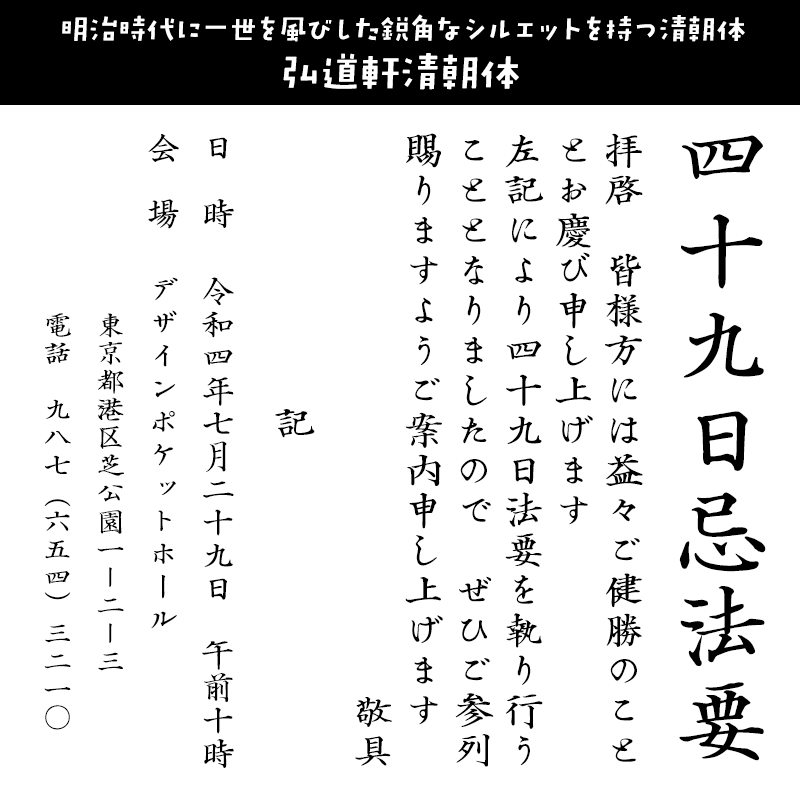 明治時代に一世を風びした鋭角なシルエットを持つ清朝体
弘道軒清朝体
四十九日忌法要
拝啓　皆様方には益々ご健勝のこと
とお慶び申し上げます
左記により四十九日法要を執り行う
こととなりましたので　ぜひご参列
賜りますようご案内申し上げます
敬具
記
日　時　令和四年七月二十九日　午前十時
会　場　デザインポケットホール
東京都港区芝公園一ー二ー三
電話　九八七（六五四）三二一〇